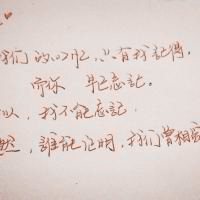 我们的回忆,只有我记得,
而你 早已忘记。
以,我不能忘记
然,誰能证明,我们曾相